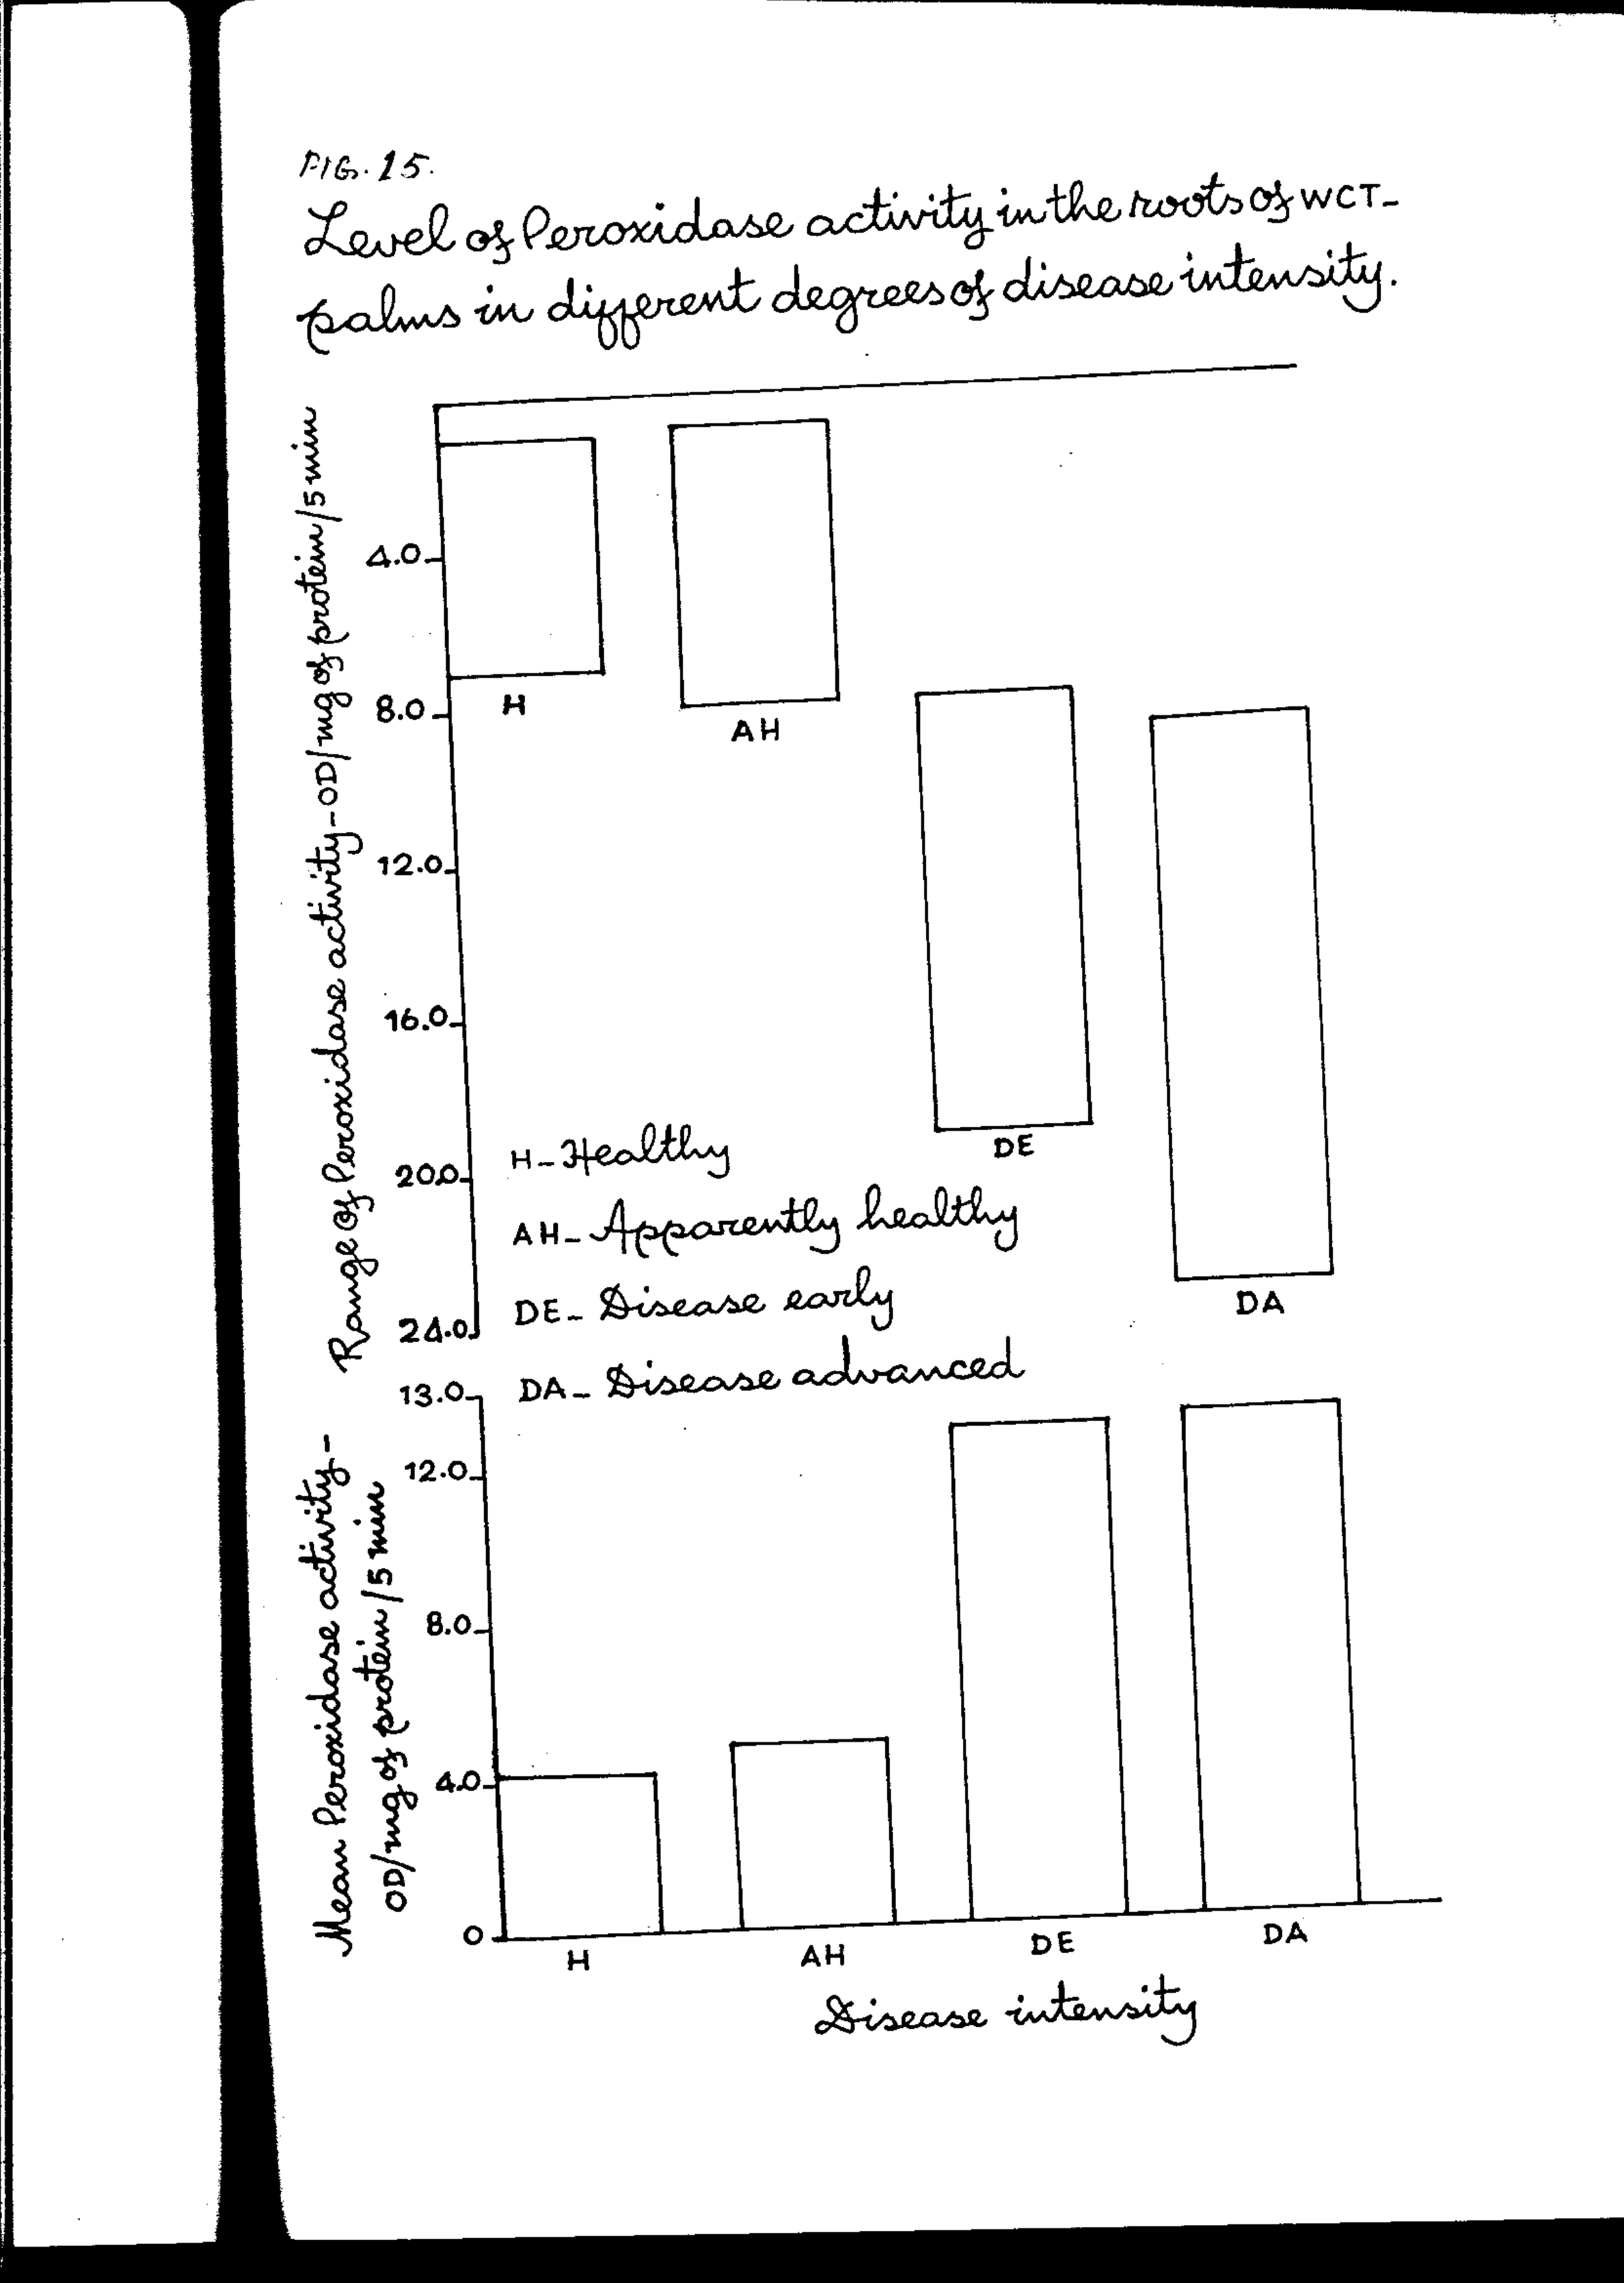 FIG. 15.
Level of Peroxidase activity in the roots of WCT-
palms in different degrees of disease intensity.
Range of Peroxidase activity-OD/mg of protein/5 min
4.0
8.0
12.0
16.0
20.0
24.0
H
AH
DE
DA
H- Healthy
AH- Apparently healthy
DE- Disease early
DA- Disease advanced
Mean Peroxidase activity-
OD/mg of protein/5 min
13.0
12.0
8.0
4.0
0
H
AH
DE
DA
Disease intensity